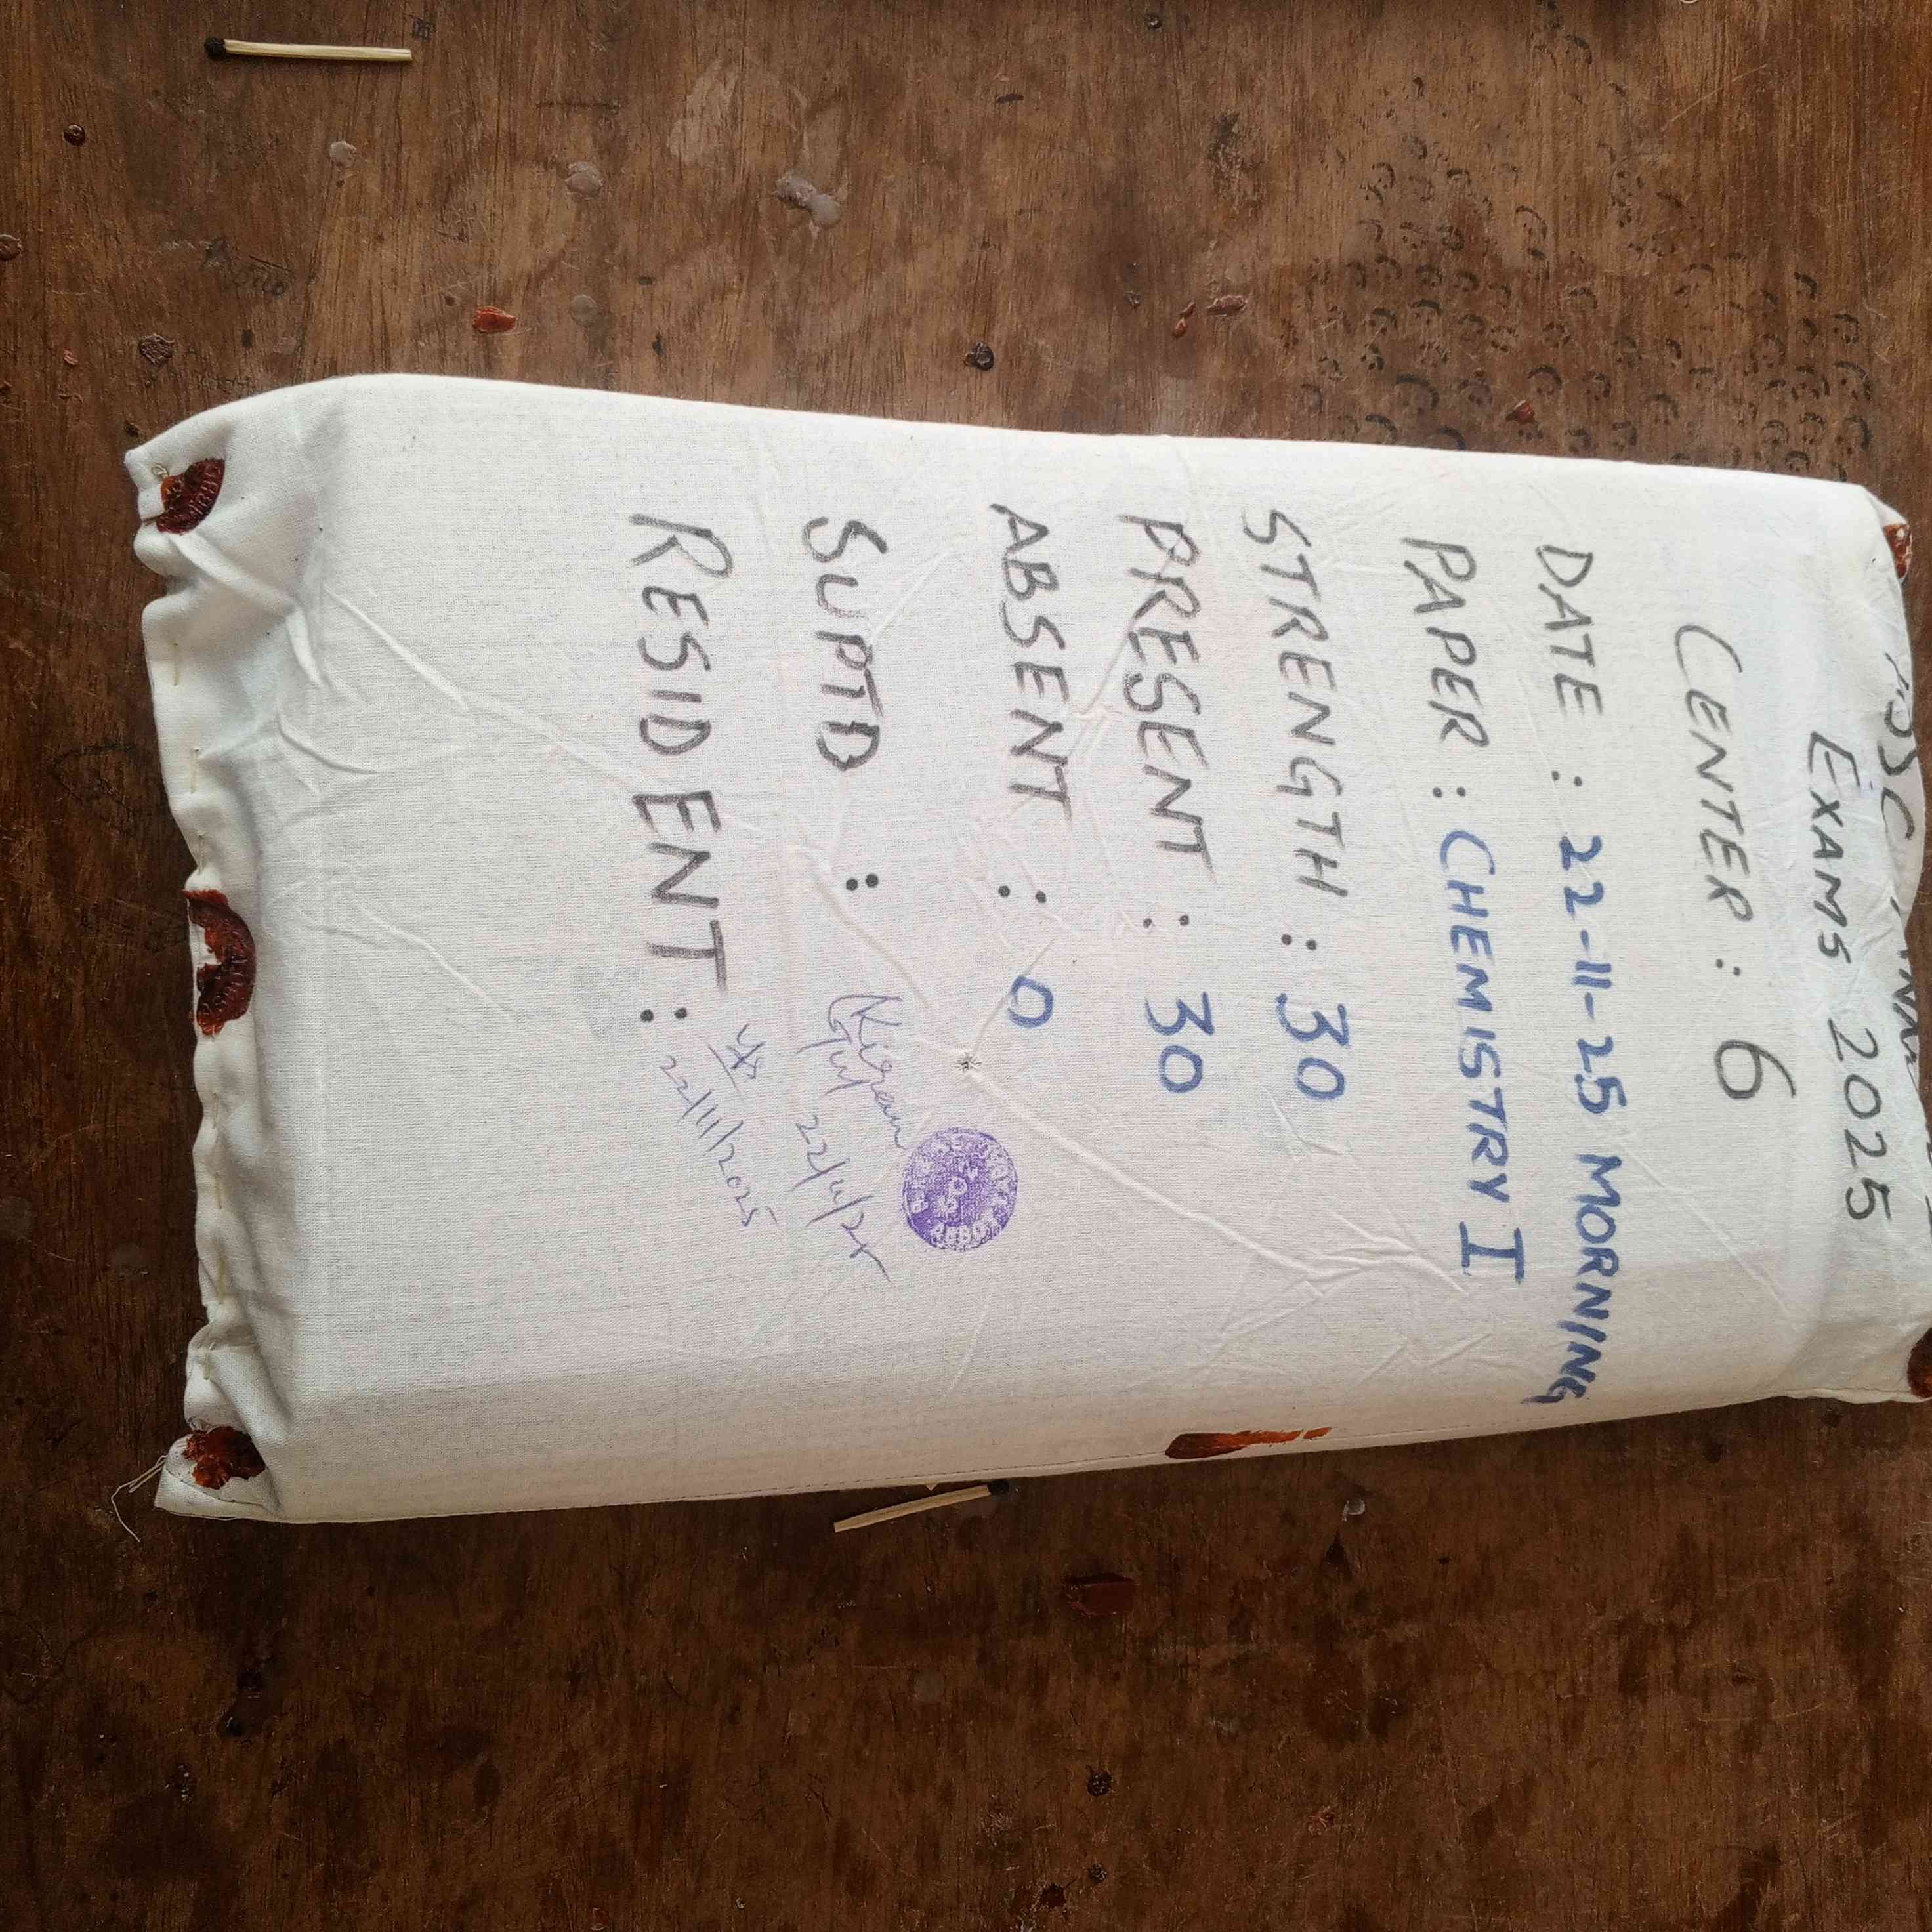 EXAMS 2025
CENTER : 6
DATE : 22-11-25 MORNING
PAPER : CHEMISTRY I
STRENGTH : 30
PRESENT : 30
ABSENT : 0
SUPTD : Kiran 22/11/25
RESIDENT : 22/11/2025